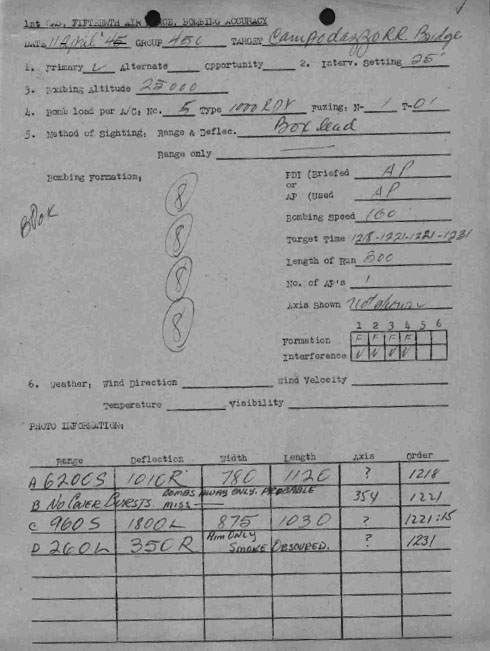 1st FIFTEENTH AIR FORCE, BOMBING ACCURACY
DATE 11 April '45 GROUP 450 TARGET Campodazzo RR Bridge
1. Primary ✓ Alternate Opportunity 2. Interv. Setting 25'
3. Bombing Altitude 25000
4. Bomb load per A/C: No. 5 Type 1000 RDX Fuzing: N- 1 T-01
5. Method of Sighting: Range & Deflec. Box lead
Range only
Bombing Formation:
8
8
8
8
PDI (Briefed AP
or
AP (Used AP
Bombing Speed 160
Target Time 1218-1221-1221-1231
Length of Run 300
No. of AP's 1
Axis Shown Not shown
1 2 3 4 5 6
Formation F F F F
Interference V V V V
6. Weather: Wind Direction Wind Velocity
Temperature Visibility
PHOTO INFORMATION:
Range Deflection Width Length Axis Order
A 6200S 1010R 780 1120 ? 1218
B No Cover Bursts. BOMBS AWAY ONLY. PROBABLE MISS 354 1221
C 960S 1800L 875 1030 ? 1221:15
D 260L 350R Aim ONLY SMOKE OBSCURED. ? 1231